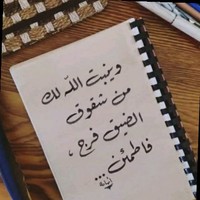 وينبت الله لك
من شقوق
الضيق فرج ،
فاطمئن ...